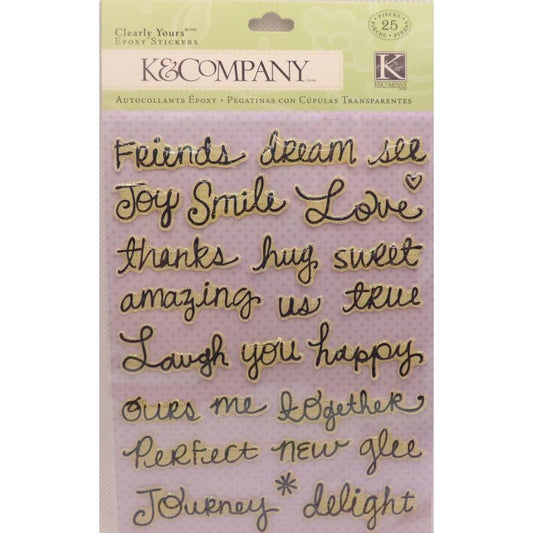 Clearly Yours
Epoxy Stickers
PIECES
25
K&COMPANY
K
K&COMPANY
Autocollants Époxy • Pegatinas con Cúpulas Transparentes
Friends dream see
Joy Smile Love
thanks hug sweet
amazing us true
Laugh you happy
ours me together
Perfect new glee
Journey * delight